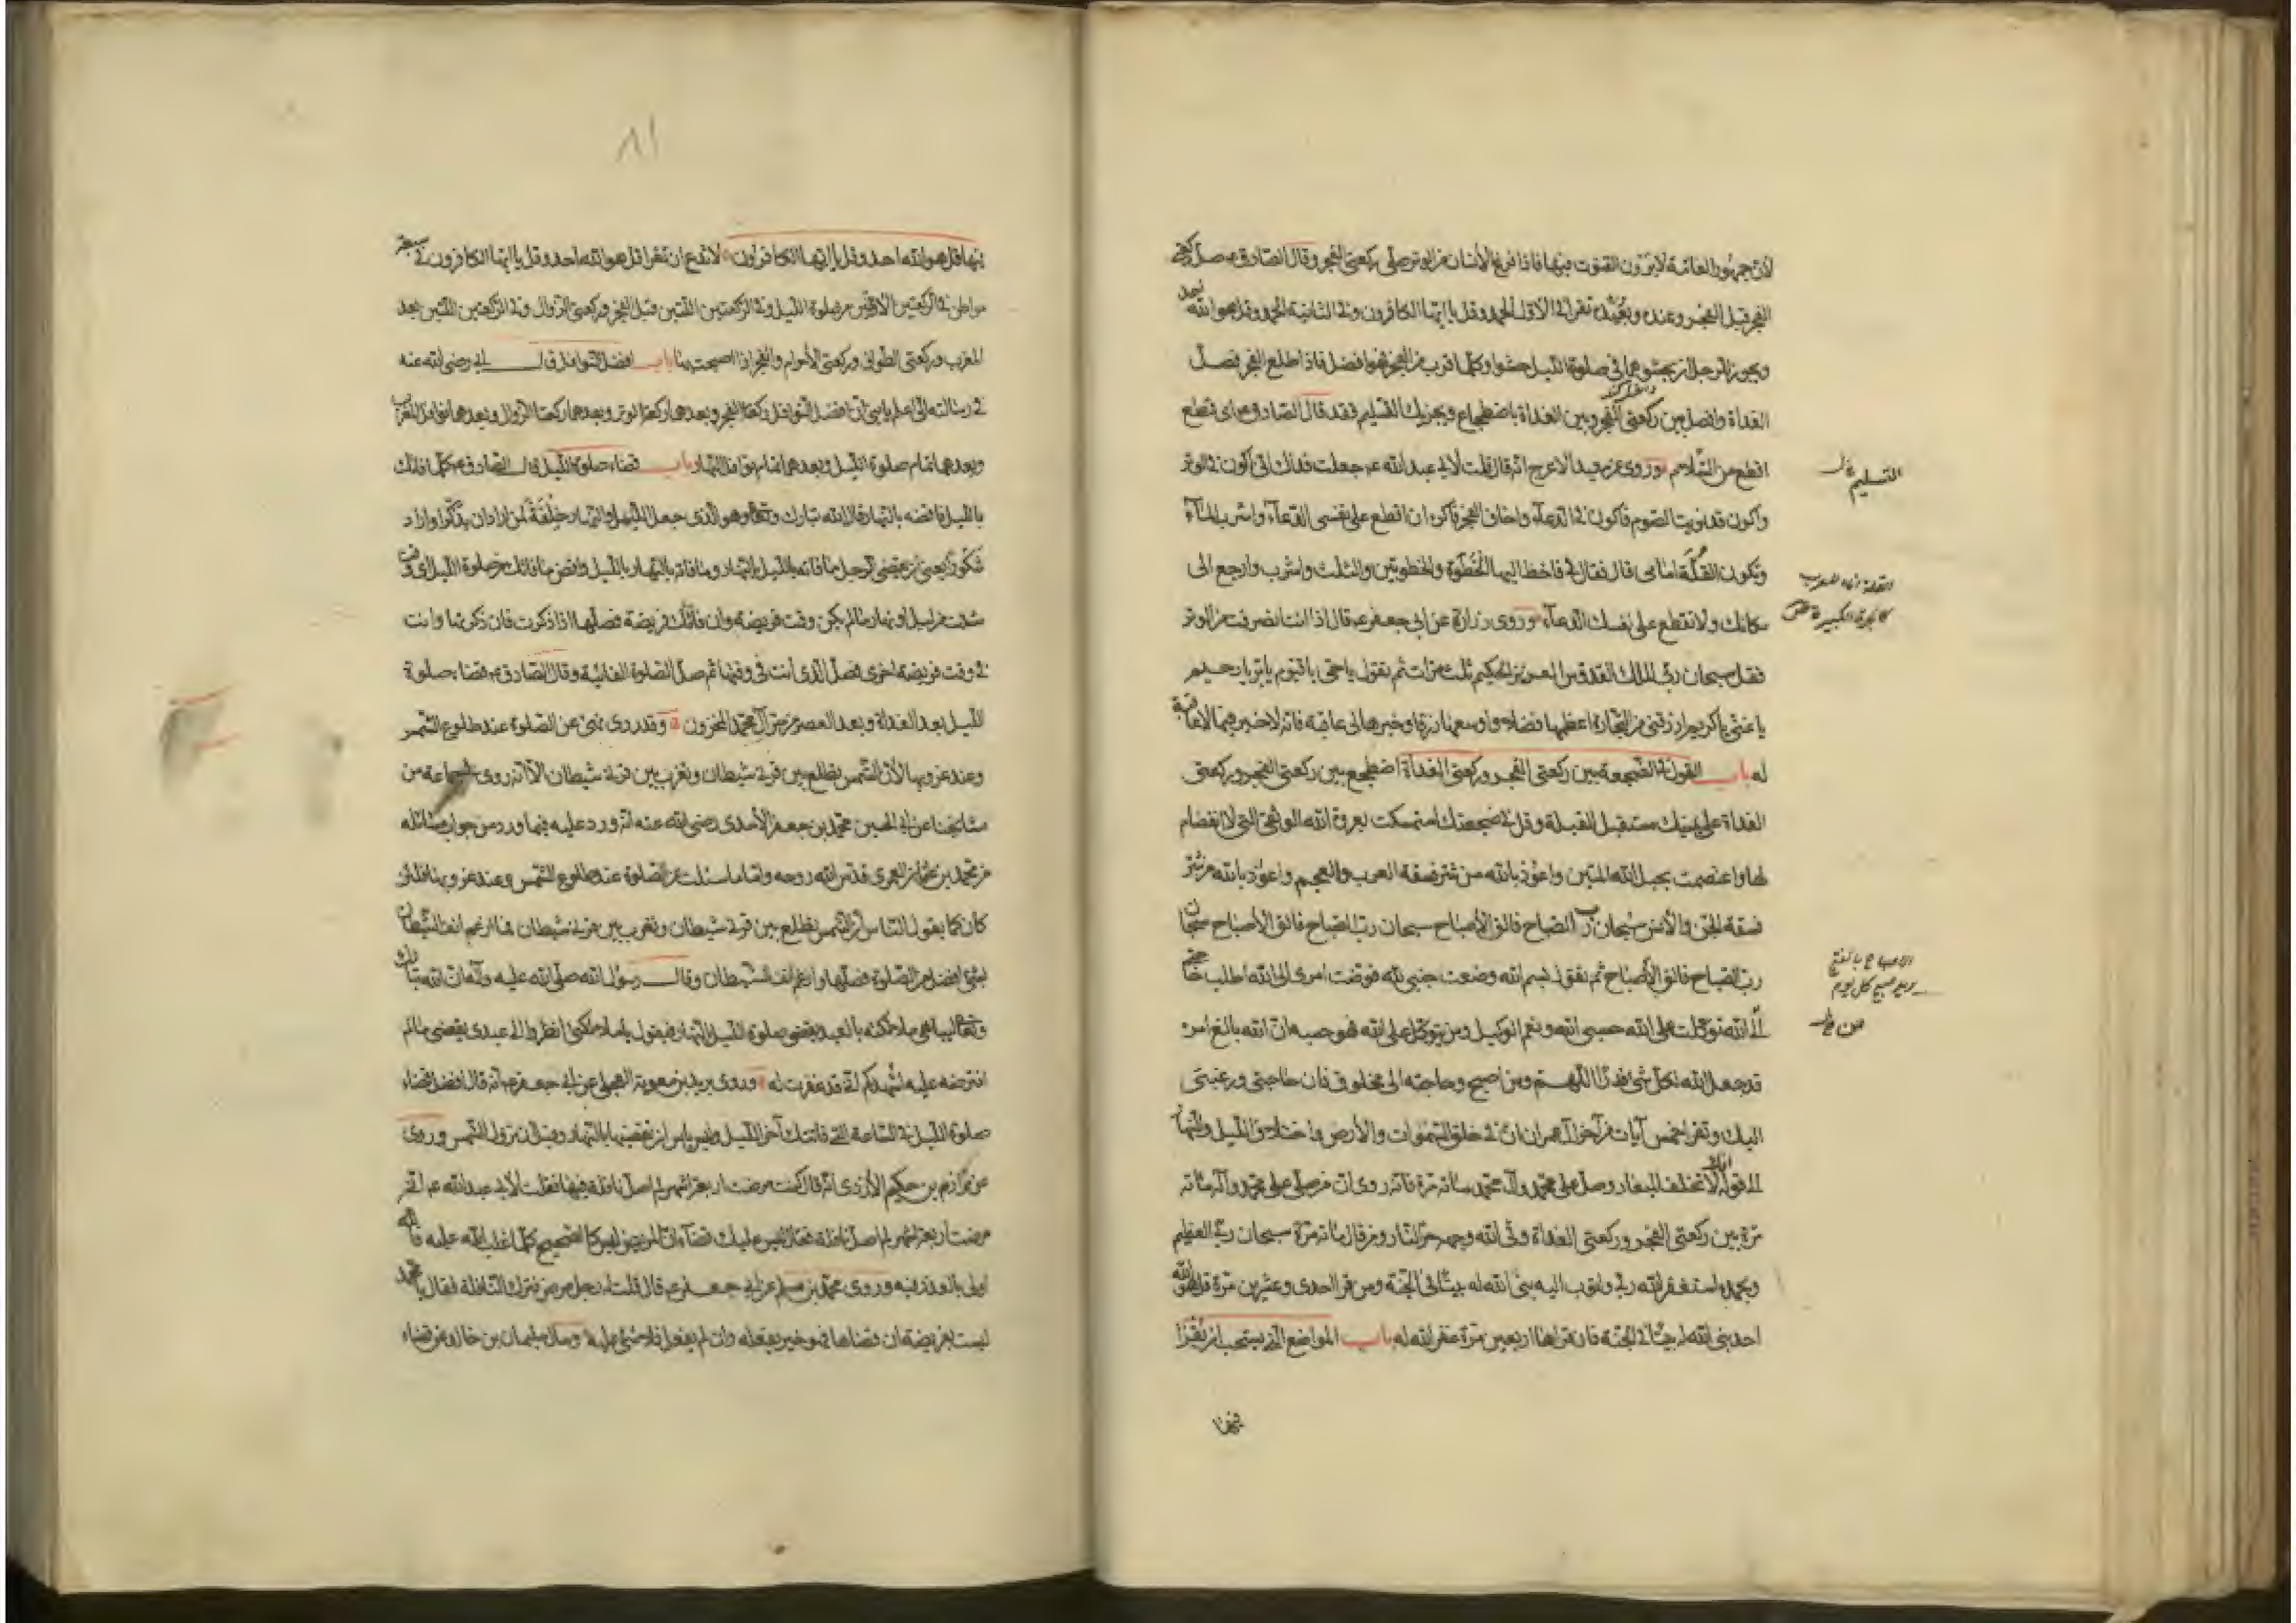 لأن جمهور العامة لا يرون القنوت فيها فاذا فرغ الانسان من الوتر صلى ركعتى الفجر وقال الصادق ع صل ركعتى
الفجر قبل الفجر وعنده وبعيده تقرأ فى الاولى الحمد وقل يا ايها الكافرون وفى الثانية الحمد وقل هو الله احد
ويجوز للرجل ان يحشوهما فى صلوة الليل حشوا وكلما قرب من الفجر فهو افضل فاذا طلع الفجر فصل
الغداة وافصل بين ركعتى الفجر وبين الغداة باضطجاع ويجزيك التسليم فقد قال الصادق ع اى قطع
اقطع من السلام وروى عن سعيد الاعرج انه قال قلت لابى عبد الله ع جعلت فداك انى اكون فى الوتر
واكون قد نويت الصوم فاكون فى الدعاء واخاف الفجر فاكره ان اقطع على نفسى الدعاء واشرب الماء
وتكون القلة امامى قال فقال لى فاخط اليها الخطوة والخطوتين والثلث واشرب وارجع الى
مكانك ولا تقطع على نفسك الدعاء وروى زرارة عن ابى جعفر ع قال اذا انت انصرفت من الوتر
فقل سبحان ربى الملك القدوس العزيز الحكيم ثلث مرات ثم تقول يا حى يا قيوم يا بر يا رحيم
يا غنى يا كريم ارزقنى من التجارة اعظمها فضلا واوسعها رزقا وخيرها لى عاقبة فانه لا خير فيما لا عاقبة
له باب القول فى الضجعة بين ركعتى الفجر وركعتى الغداة اضطجع بين ركعتى الفجر وركعتى
الغداة على يمينك مستقبل القبلة وقل فى ضجعتك استمسكت بعروة الله الوثقى التى لا انفصام
لها واعتصمت بحبل الله المتين واعوذ بالله من شر فسقة العرب والعجم واعوذ بالله من شر
فسقة الجن والانس سبحان رب الصباح فالق الاصباح سبحان رب الصباح فالق الاصباح سبحان
رب الصباح فالق الاصباح ثم تقول بسم الله وضعت جنبى لله فوضت امرى الى الله اطلب حاجتى
من الله توكلت على الله حسبى الله ونعم الوكيل ومن يتوكل على الله فهو حسبه ان الله بالغ امره
قد جعل الله لكل شئ قدرا اللهم ومن اصبح وحاجته الى مخلوق فان حاجتى ورغبتى
اليك وتقرأ خمس آيات من آخر آل عمران ان فى خلق السموات والارض واختلاف الليل والنهار
الى قوله انك لا تخلف الميعاد وصل على محمد وآل محمد مائة مرة فانه روى ان من صلى على محمد وآله مائة
مرة بين ركعتى الفجر وركعتى الغداة وقى الله وجهه حر النار ومن قال مائة مرة سبحان ربى العظيم
وبحمده استغفر الله ربى واتوب اليه بنى الله له بيتا فى الجنة ومن قرأ احدى وعشرين مرة قل هو الله
احد بنى الله له بيتا فى الجنة فان قرأها اربعين مرة غفر الله له باب المواضع التى يستحب ان يقرأ
فيها
التسليم
الاصباح بالفتح
صبح كل يوم
٨١
فيها قل هو الله احد وقل يا ايها الكافرون لا تدع ان تقرأ قل هو الله احد وقل يا ايها الكافرون فى سبعة
مواطن فى الركعتين الاولتين من صلوة الليل وفى الركعتين اللتين قبل الفجر وركعتى الزوال وفى الركعتين اللتين بعد
المغرب وركعتى الطواف وركعتى الاحرام والفجر اذا اصبحت بها باب افضل النوافل قال ابى رضى الله عنه
فى رسالته الى اعلم يا بنى ان افضل النوافل ركعتا الفجر وبعدهما ركعة الوتر وبعدها ركعتا الزوال وبعدهما نوافل المغرب
وبعدها تمام صلوة الليل وبعدها تمام نوافل النهار باب قضاء صلوة الليل قال الصادق ع كلما فاتك
بالليل فاقضه بالنهار قال الله تبارك وتعالى وهو الذى جعل الليل والنهار خلفة لمن اراد ان يذكر او اراد
شكورا يعنى ان يقضى الرجل ما فاته بالليل بالنهار وما فاته بالنهار بالليل واقض ما فاتك من صلوة الليل اى وقت
شئت من ليل او نهار ما لم يكن وقت فريضة وان فاتتك فريضة فصلها اذا ذكرت فان ذكرتها وانت
فى وقت فريضة اخرى فصل التى انت فى وقتها ثم صل الصلوة الفائتة وقال الصادق ع قضاء صلوة
الليل بعد الغداة وبعد العصر من سر آل محمد المخزون وقد روى نهى عن الصلوة عند طلوع الشمس
وعند غروبها لأن الشمس تطلع بين قرنى شيطان وتغرب بين قرنى شيطان الا انه روى لى جماعة من
مشايخنا عن ابى الحسين محمد بن جعفر الاسدى رضى الله عنه انه ورد عليه فيما ورد من جواب مسائله
من محمد بن عثمان العمرى قدس الله روحه واما ما سئلت عن الصلوة عند طلوع الشمس وعند غروبها فلئن
كان كما يقول الناس ان الشمس تطلع بين قرنى شيطان وتغرب بين قرنى شيطان فما ارغم انف الشيطان
بشئ افضل من الصلوة فصلها وارغم انف الشيطان وقال رسول الله صلى الله عليه وآله ان الله تبارك
وتعالى ليباهى ملائكته بالعبد يقضى صلوة الليل بالنهار فيقول يا ملائكتى انظروا الى عبدى يقضى ما لم
افترضه عليه اشهدكم انى قد غفرت له وروى بريد بن معوية العجلى عن ابى جعفر ع انه قال افضل قضاء
صلوة الليل فى الساعة التى فاتتك آخر الليل وليس بأس ان تقضيها بالنهار وقبل ان تزول الشمس وروى
عن مرازم بن حكيم الازدى انه قال كنت مرضت اربعة اشهر لم اصل نافلة فيها فقلت لابى عبد الله ع انى
مرضت اربعة اشهر لم اصل نافلة فقال ليس عليك قضاء ان المريض ليس كالصحيح كلما غلب الله عليه فالله
اولى بالعذر فيه وروى محمد بن مسلم عن ابى جعفر ع قال قلت له رجل مرض فترك النافلة فقال يا محمد
ليست بفريضة ان قضاها فهو خير يفعله وان لم يفعل فلا شئ عليه وسأل سليمان بن خالد عن قضاء